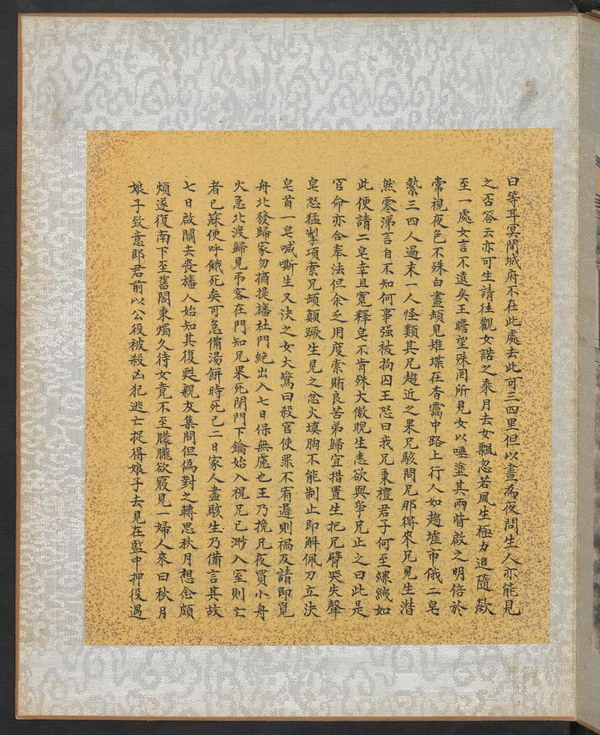 曰等耳冥間城府不在此處去此可三四里但以晝為夜問生人亦能見
之否答云亦可生請往觀女諾之乘月去女飄忽若風生極力追隨歘
至一處女言不遠矣王瞻望殊罔所見女以唾塗其兩眥啟之明倍於
常視夜色不殊白晝頓見雉堞在杳靄中路上行人如趨墟市俄二皂
縶三四人過末一人怪類其兄趨近之果兄駭問兄那得來兄見生潸
然零涕言自不知何事强被拘囚王怒曰我兄秉禮君子何至縲絏如
此便請二皂幸且寬釋皂不肯殊大傲睨生恚欲與爭兄止之曰此是
官命亦合奉法但余乏用度索賄良苦弟歸宜措置生把兄臂哭失聲
皂怒猛掣項索兄頓顛蹶生見之忿火填胸不能制止即解佩刀立決
皂首一皂喊嘶生又決之女大驚曰殺官使罪不宥遲則禍及請即覓
舟北發歸家勿摘提旛杜門絕出入七日保無慮也王乃挽兄夜買小舟
火急北渡歸見弔客在門知兄果死閉門下鑰始入視兄已渺入室則亡
者已蘇便呼餓死矣可急備湯餅時死已二日家人盡駭生乃備言其故
七日啟關去喪旛人始知其復甦親友集問但偽對之轉思秋月想念頗
煩遂復南下至舊閣秉燭久待女竟不至朦朧欲寢見一婦人來曰秋月
娘子致意郎君前以公役被殺凶犯逃亡捉得娘子去見在監中押役遇